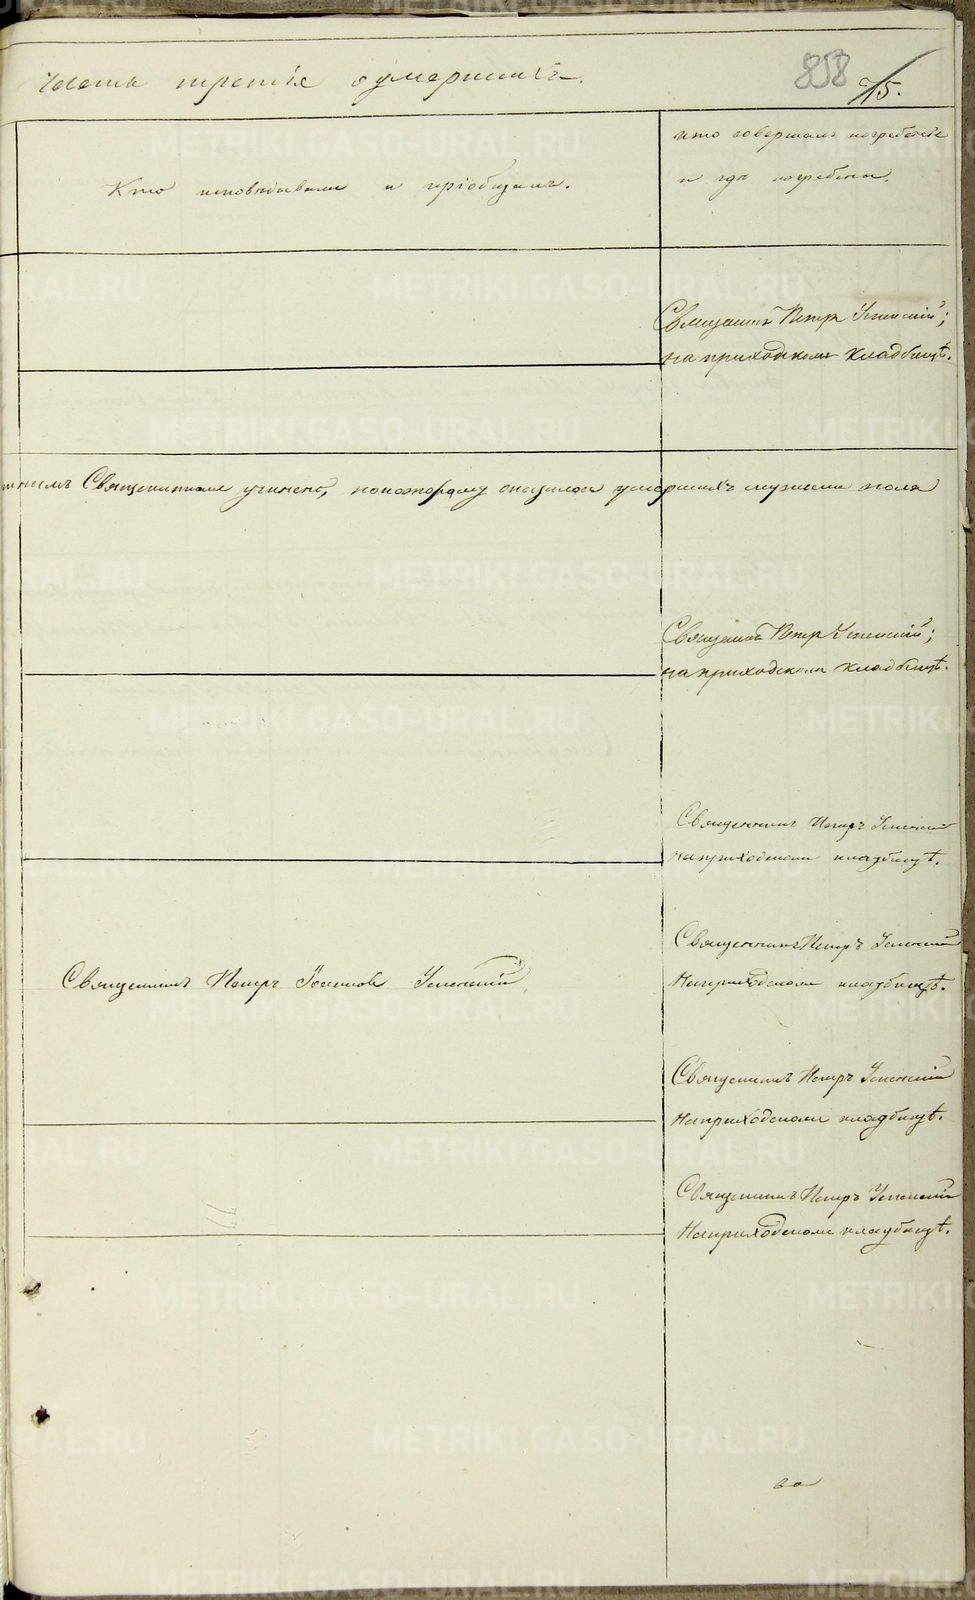 Часть третія о умершихъ.
858
715.
Кто исповѣдывалъ и пріобщалъ.
кто совершалъ погребеніе
и гдѣ погребены.
Священникъ Петръ Успенскій;
на приходскомъ кладбищѣ.
Священникомъ учинено, по которому оказалось умершихъ мужеска пола
Священникъ Петръ Успенскій;
на приходскомъ кладбищѣ.
Священникъ Петръ Успенскій
на приходскомъ кладбищѣ.
Священникъ Петръ Успенскій
На приходскомъ кладбищѣ.
Священникъ Петръ Іоанновъ Успенскій
Священникъ Петръ Успенскій
На приходскомъ кладбищѣ.
Священникъ Петръ Успенскій
На приходскомъ кладбищѣ.
METRIKI.GASO-URAL.RU